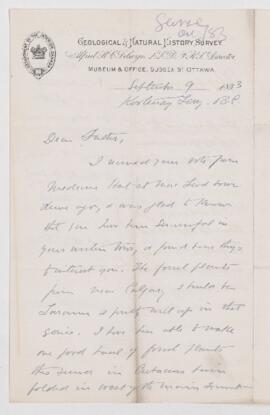 GEOLOGICAL & NATURAL HISTORY SURVEY.
Alfred R. C. Selwyn, L.L.D. F.R.S. Director
MUSEUM & OFFICE, SUSSEX ST OTTAWA.
September 9 1883
Kootenay Ferry, B.C.
Dear Father,
I received your note from
Medicine Hat at
days ago, & was glad to know
that you had been successful in
your western tour, & found things
to interest you. The fossil plants
from near Calgary should be
Laramie & pretty well up in that
series. I have been able to make
one good haul of fossil plants
this summer in Cretaceous
folded in west of the main